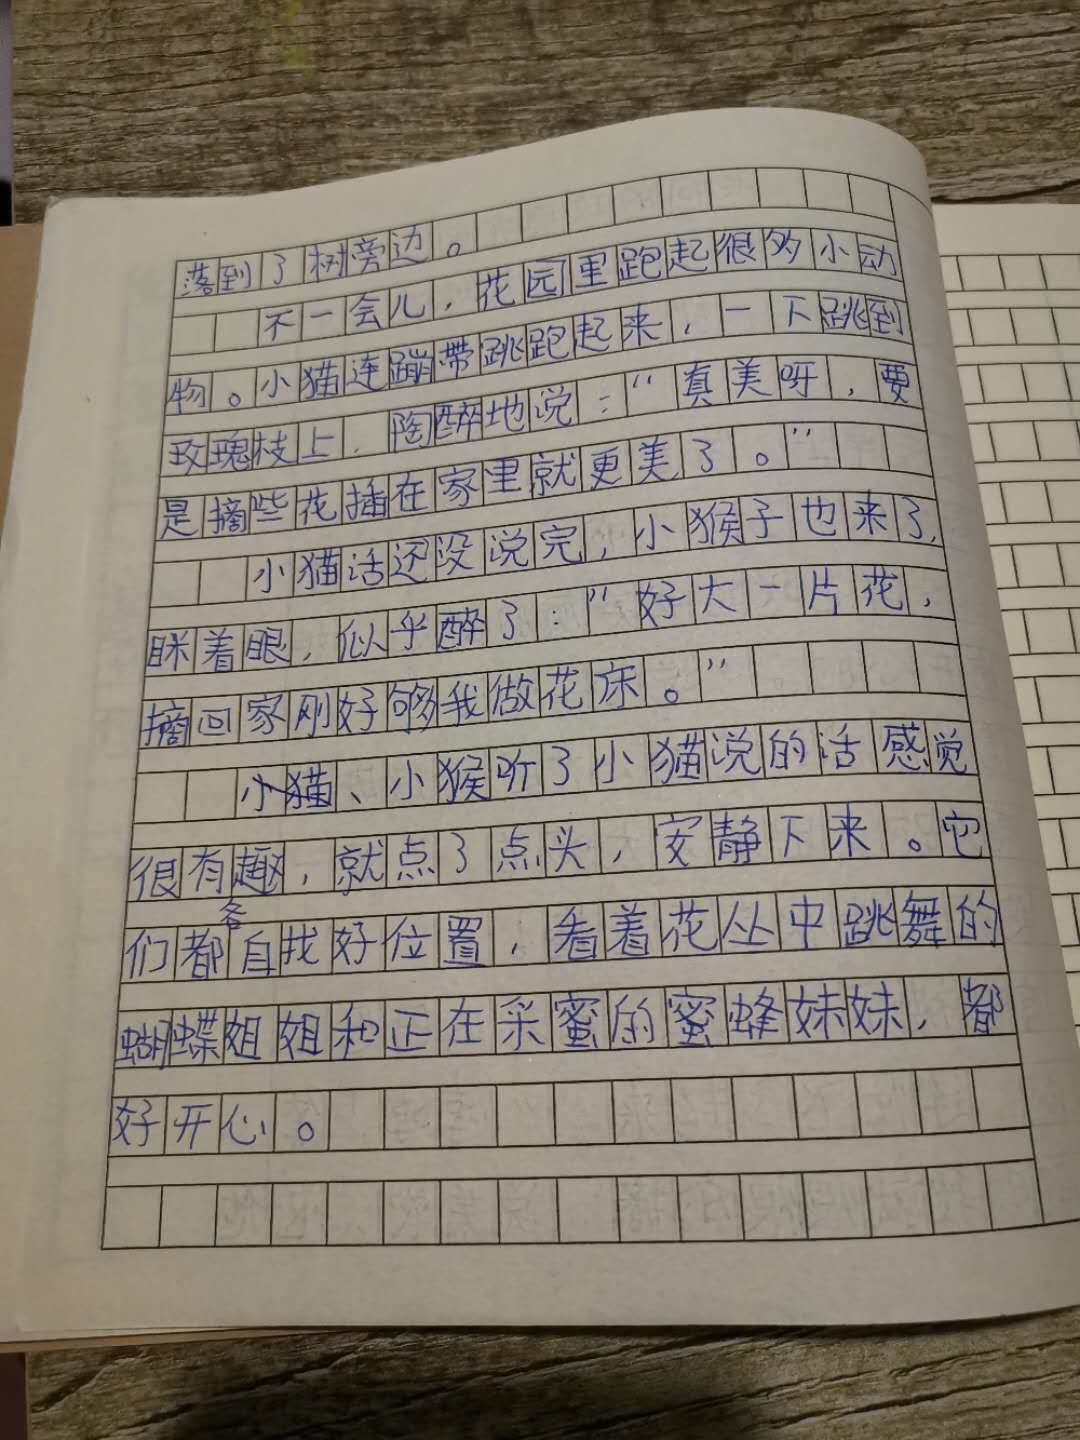 落到了树旁边。
不一会儿，花园里跑起很多小动
物。小猫连蹦带跳跑起来，一下跳到
玫瑰枝上，陶醉地说：“真美呀，要
是摘些花插在家里就更美了。”
小猫话还没说完，小猴子也来了，
眯着眼，似乎醉了：“好大一片花，
摘回家刚好够我做花床。”
小猫、小猴听了小猫说的话感觉
很有趣，就点了点头，安静下来。它
们都各自找好位置，看着花丛中跳舞的
蝴蝶姐姐和正在采蜜的蜜蜂妹妹，都
好开心。